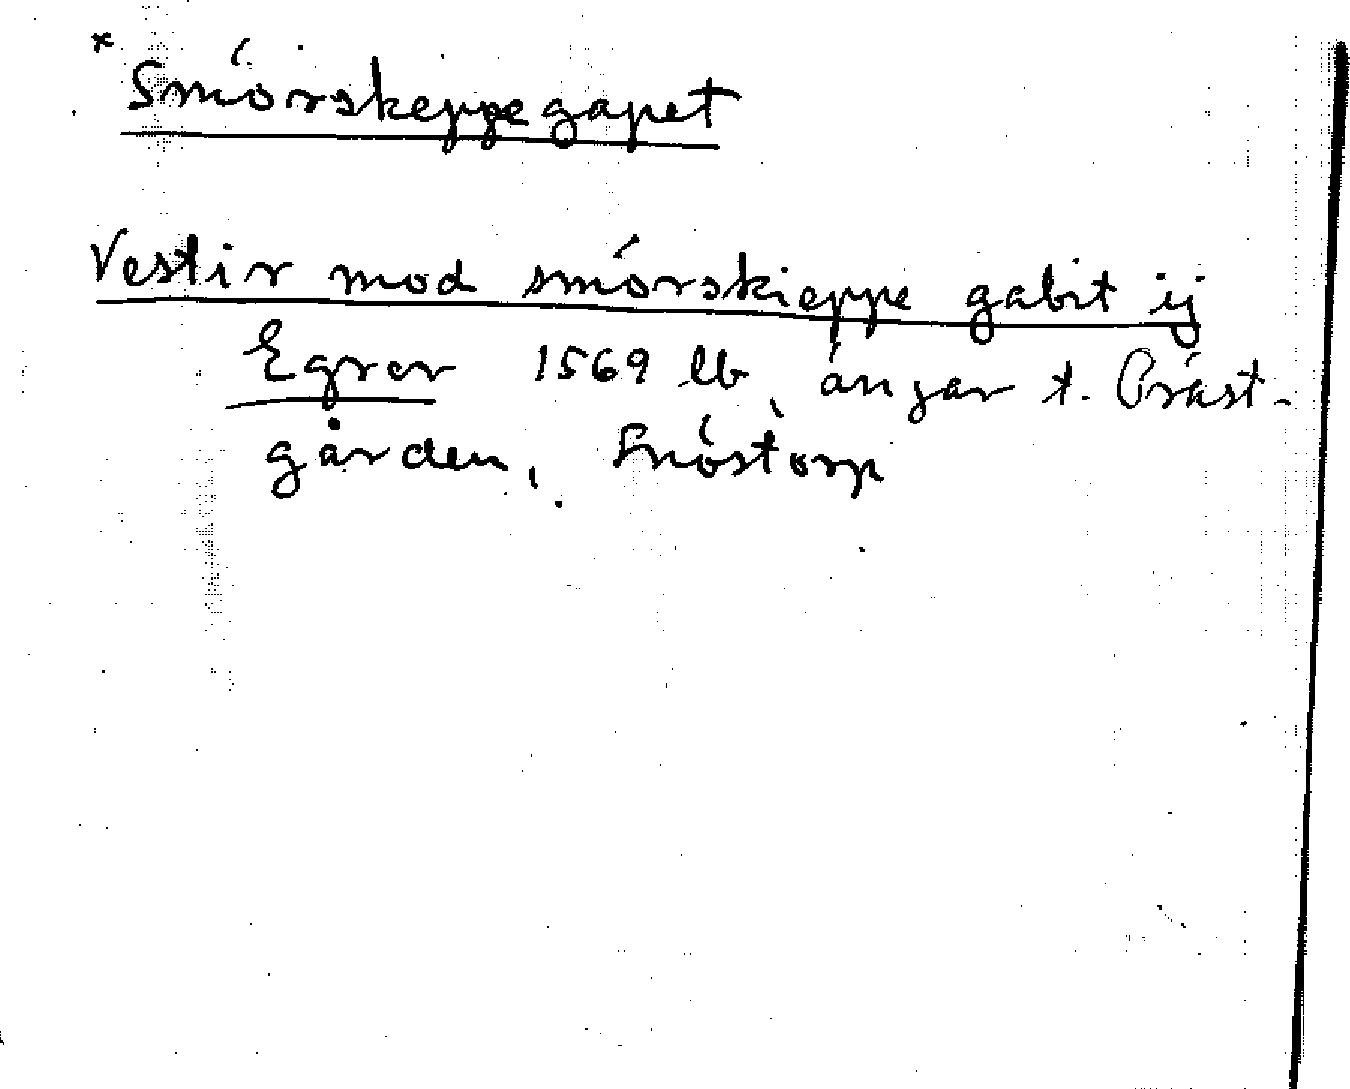 * Smörskeppegapet
Vestir mod smörskieppe gabit ij
Egrer 1569 lb, ängar t. Präst-
gården, Snöstorp